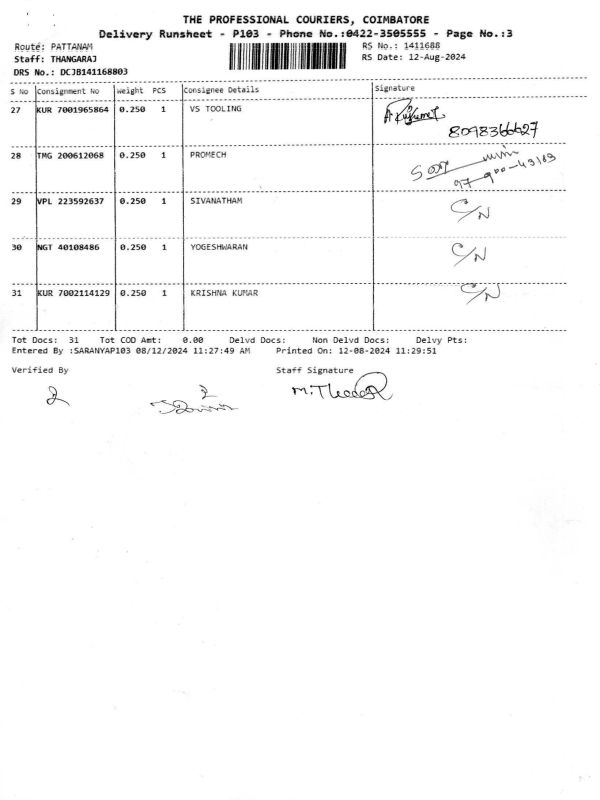 THE PROFESSIONAL COURIERS, COIMBATORE
Delivery Runsheet - P103 - Phone No.:0422-3505555 - Page No.:3
Route: PATTANAM RS No.: 1411688
Staff: THANGARAJ RS Date: 12-Aug-2024
DRS No.: DCJB141168803
S No Consignment No Weight PCS Consignee Details Signature
27 KUR 7001965864 0.250 1 VS TOOLING
8098366627
28 TMG 200612068 0.250 1 PROMECH
29 VPL 223592637 0.250 1 SIVANATHAM C/N
30 NGT 40108486 0.250 1 YOGESHWARAN C/N
31 KUR 7002114129 0.250 1 KRISHNA KUMAR C/N
Tot Docs: 31 Tot COD Amt: 0.00 Delvd Docs: Non Delvd Docs: Delvy Pts:
Entered By :SARANYAP103 08/12/2024 11:27:49 AM Printed On: 12-08-2024 11:29:51
Verified By Staff Signature